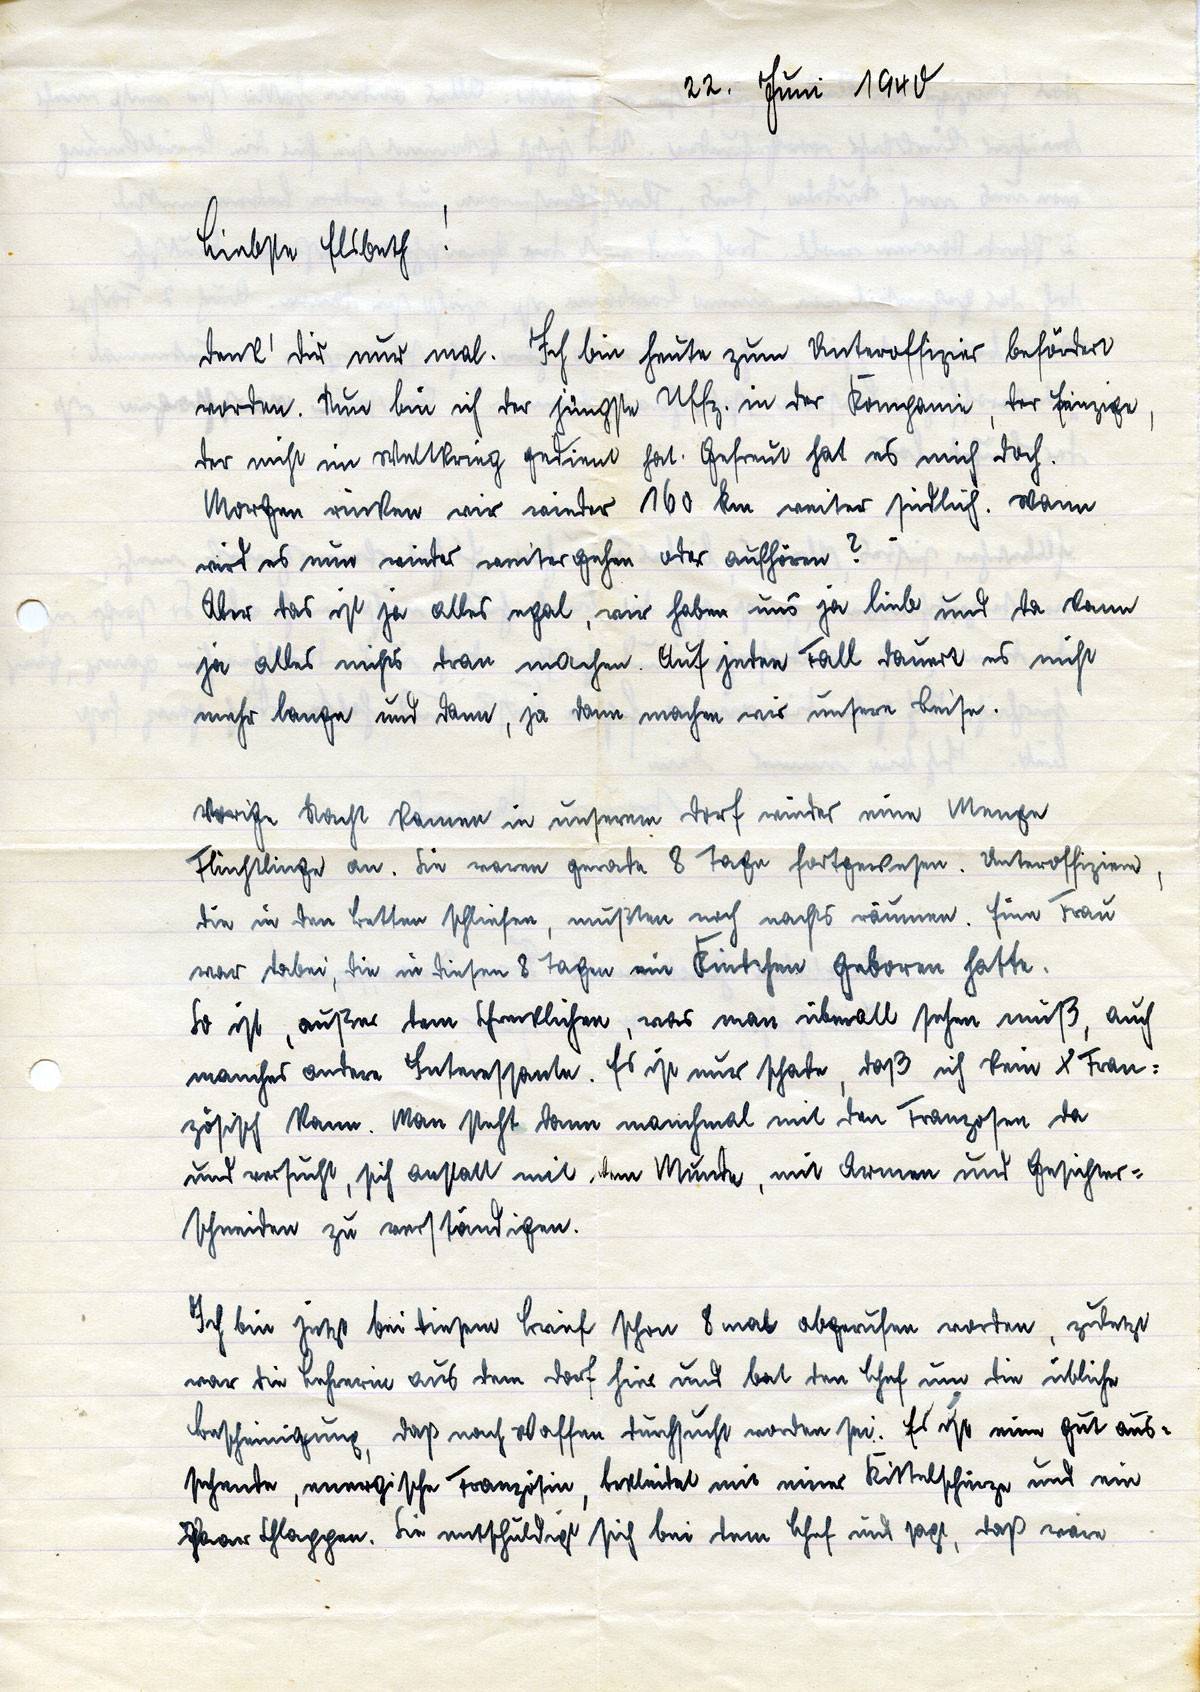 22. Juni 1940
Liebste Elsbeth!
Denk' dir nur mal. Ich bin heute zum Unteroffizier befördert
worden. Nun bin ich der jüngste Uffz. in der Kompanie, der Einzige,
der nicht im Weltkrieg gedient hat. Gefreut hat es mich doch.
Morgen rücken wir wieder 160 km weiter südlich. Wann
wird es nun wieder weitergehen oder aufhören?
Aber das ist ja alles egal, wir haben uns ja lieb und da kann
ja alles nichts dran machen. Auf jeden Fall dauert es nicht
mehr lange und dann, ja dann machen wir unsere Reise.
Vorige Nacht kamen in unserem Dorf wieder eine Menge
Flüchtlinge an. Sie waren gerade 8 Tage fortgewesen. Unteroffiziere,
die in den Betten schliefen, mußten noch nachts räumen. Eine Frau
war dabei, die in diesen 8 Tagen ein Kindchen geboren hatte.
So ist, außer dem Schrecklichen, was man überall sehen muß, auch
manches andere Interessante. Es ist nur schade, daß ich kein Fran=
zösisch kann. Man steht dann manchmal mit den Franzosen da
und versucht, sich anstatt mit dem Munde, mit Armen und Gesichter=
schneiden zu verständigen.
Ich bin jetzt bei diesem Brief schon 8 mal abgerufen worden, zuletzt
war die Lehrerin aus dem Dorf hier und bat den Chef um die übliche
Bescheinigung, daß nach Waffen durchsucht worden sei. Es ist eine gut aus=
sehende, energische Französin, bekleidet mit einer Kittelschürze und ein
Paar Schlappen. Sie entschuldigt sich bei dem Chef und sagt, daß wäre